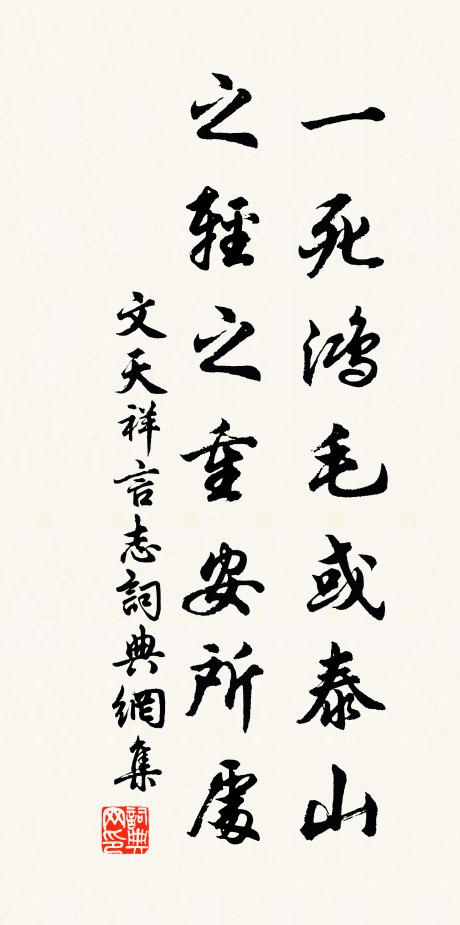 一死鴻毛或泰山
之輕之重安所處
文天祥言志詞典網集
詞典网印